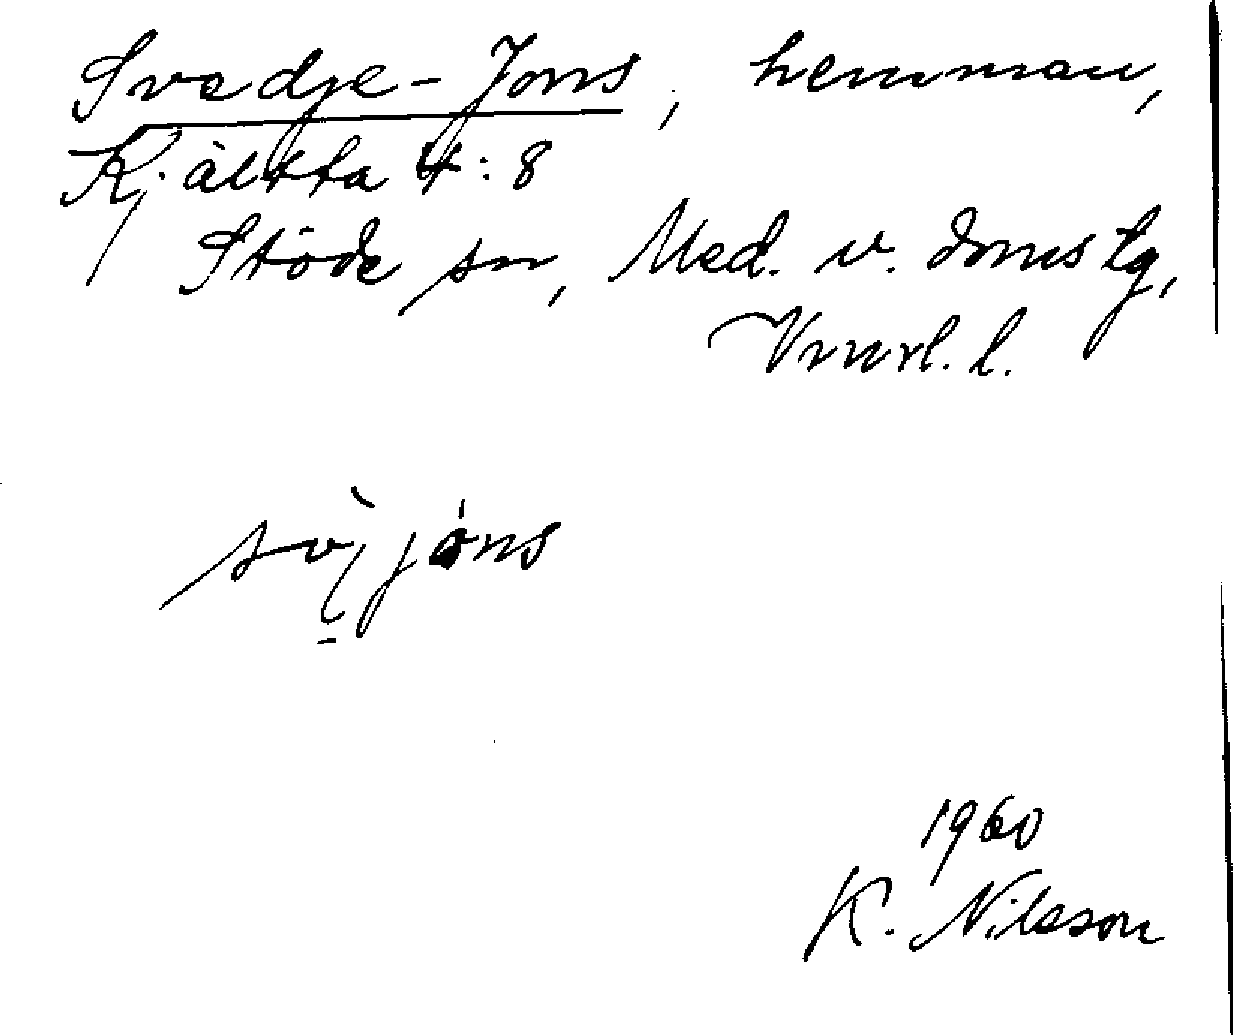 Svedje-Jons, hemman,
Kjältta 4:8
Stöde sn, Med. v. doms tg,
Vnorl. l.
1960
K. Nilsson